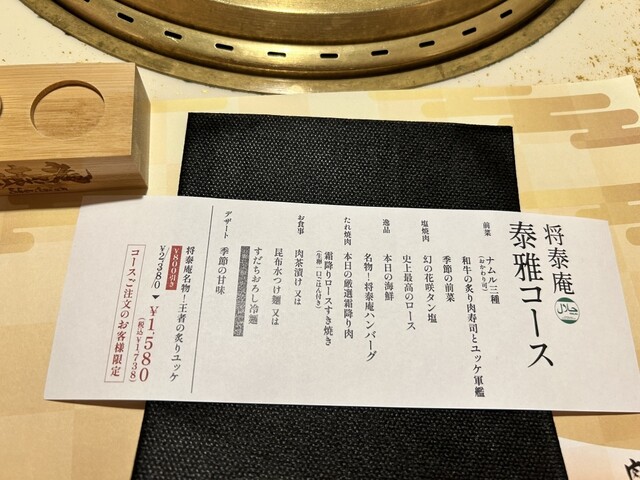 将泰庵
泰雅コース
حلال
前菜
ナムル三種
(おかわり可)
和牛の炙り肉寿司とユッケ軍艦
季節の前菜
塩焼肉
幻の花咲タン塩
史上最高のロース
逸品
本日の海鮮
名物!将泰庵ハンバーグ
たれ焼肉
本日の厳選霜降り肉
霜降りロースすき焼き
(生卵一口ごはん付き)
お食事
肉茶漬け 又は
昆布水つけ麺 又は
すだちおろし冷麺
デザート
季節の甘味
将泰庵名物!王者の炙りユッケ
¥800引き
¥2,380/▼¥1,580
(税込¥1,738)
コースご注文のお客様限定